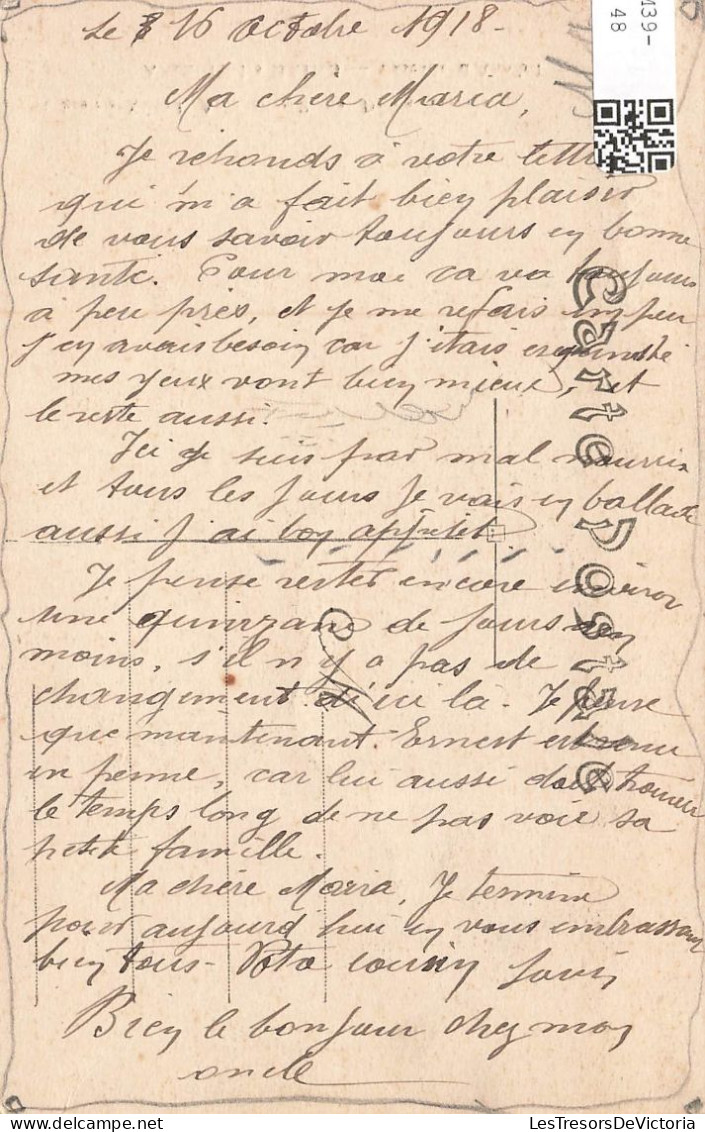 Le 16 Octobre 1918-
Ma chère Maria,
Je réponds à votre lettre
qui m'a fait bien plaisir
de vous savoir toujours en bonne
santé. Pour moi ça va toujours
à peu près, et je me refais un peu
j'en avais besoin car j'étais esquinté
mes yeux vont bien mieux, et
le reste aussi.
Ici je suis pas mal nourri
et tous les jours je vais en ballade
aussi j'ai bon appétit
Je pense rester encore environ
une quinzane de jours
moins, s'il n'y a pas de
changement d'ici là. Je pense
que maintenant Ernest est venu
en perme, car lui aussi doit trouver
le temps long de ne pas voir sa
petite famille.
Ma chère Maria, Je termine
pour aujourd'hui en vous embrassant
bien tous- Voto cousin
Bien le bonjour chez mon
oncle
Carte Postale
139-
48
LesTresorsDeVictoria.com